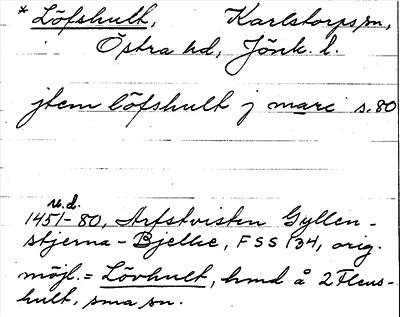 * Löfshult, Karlstorps sn,
Östra hd, Jönk. l.
jtem löfshult j marc s. 80
u.d.
1451-80, Arfstvisten Gyllen-
stjerna - Bjelke, FSS 134, orig.
möjl. = Lövhult, hmd å 2 Flens-
hult, sma sn.